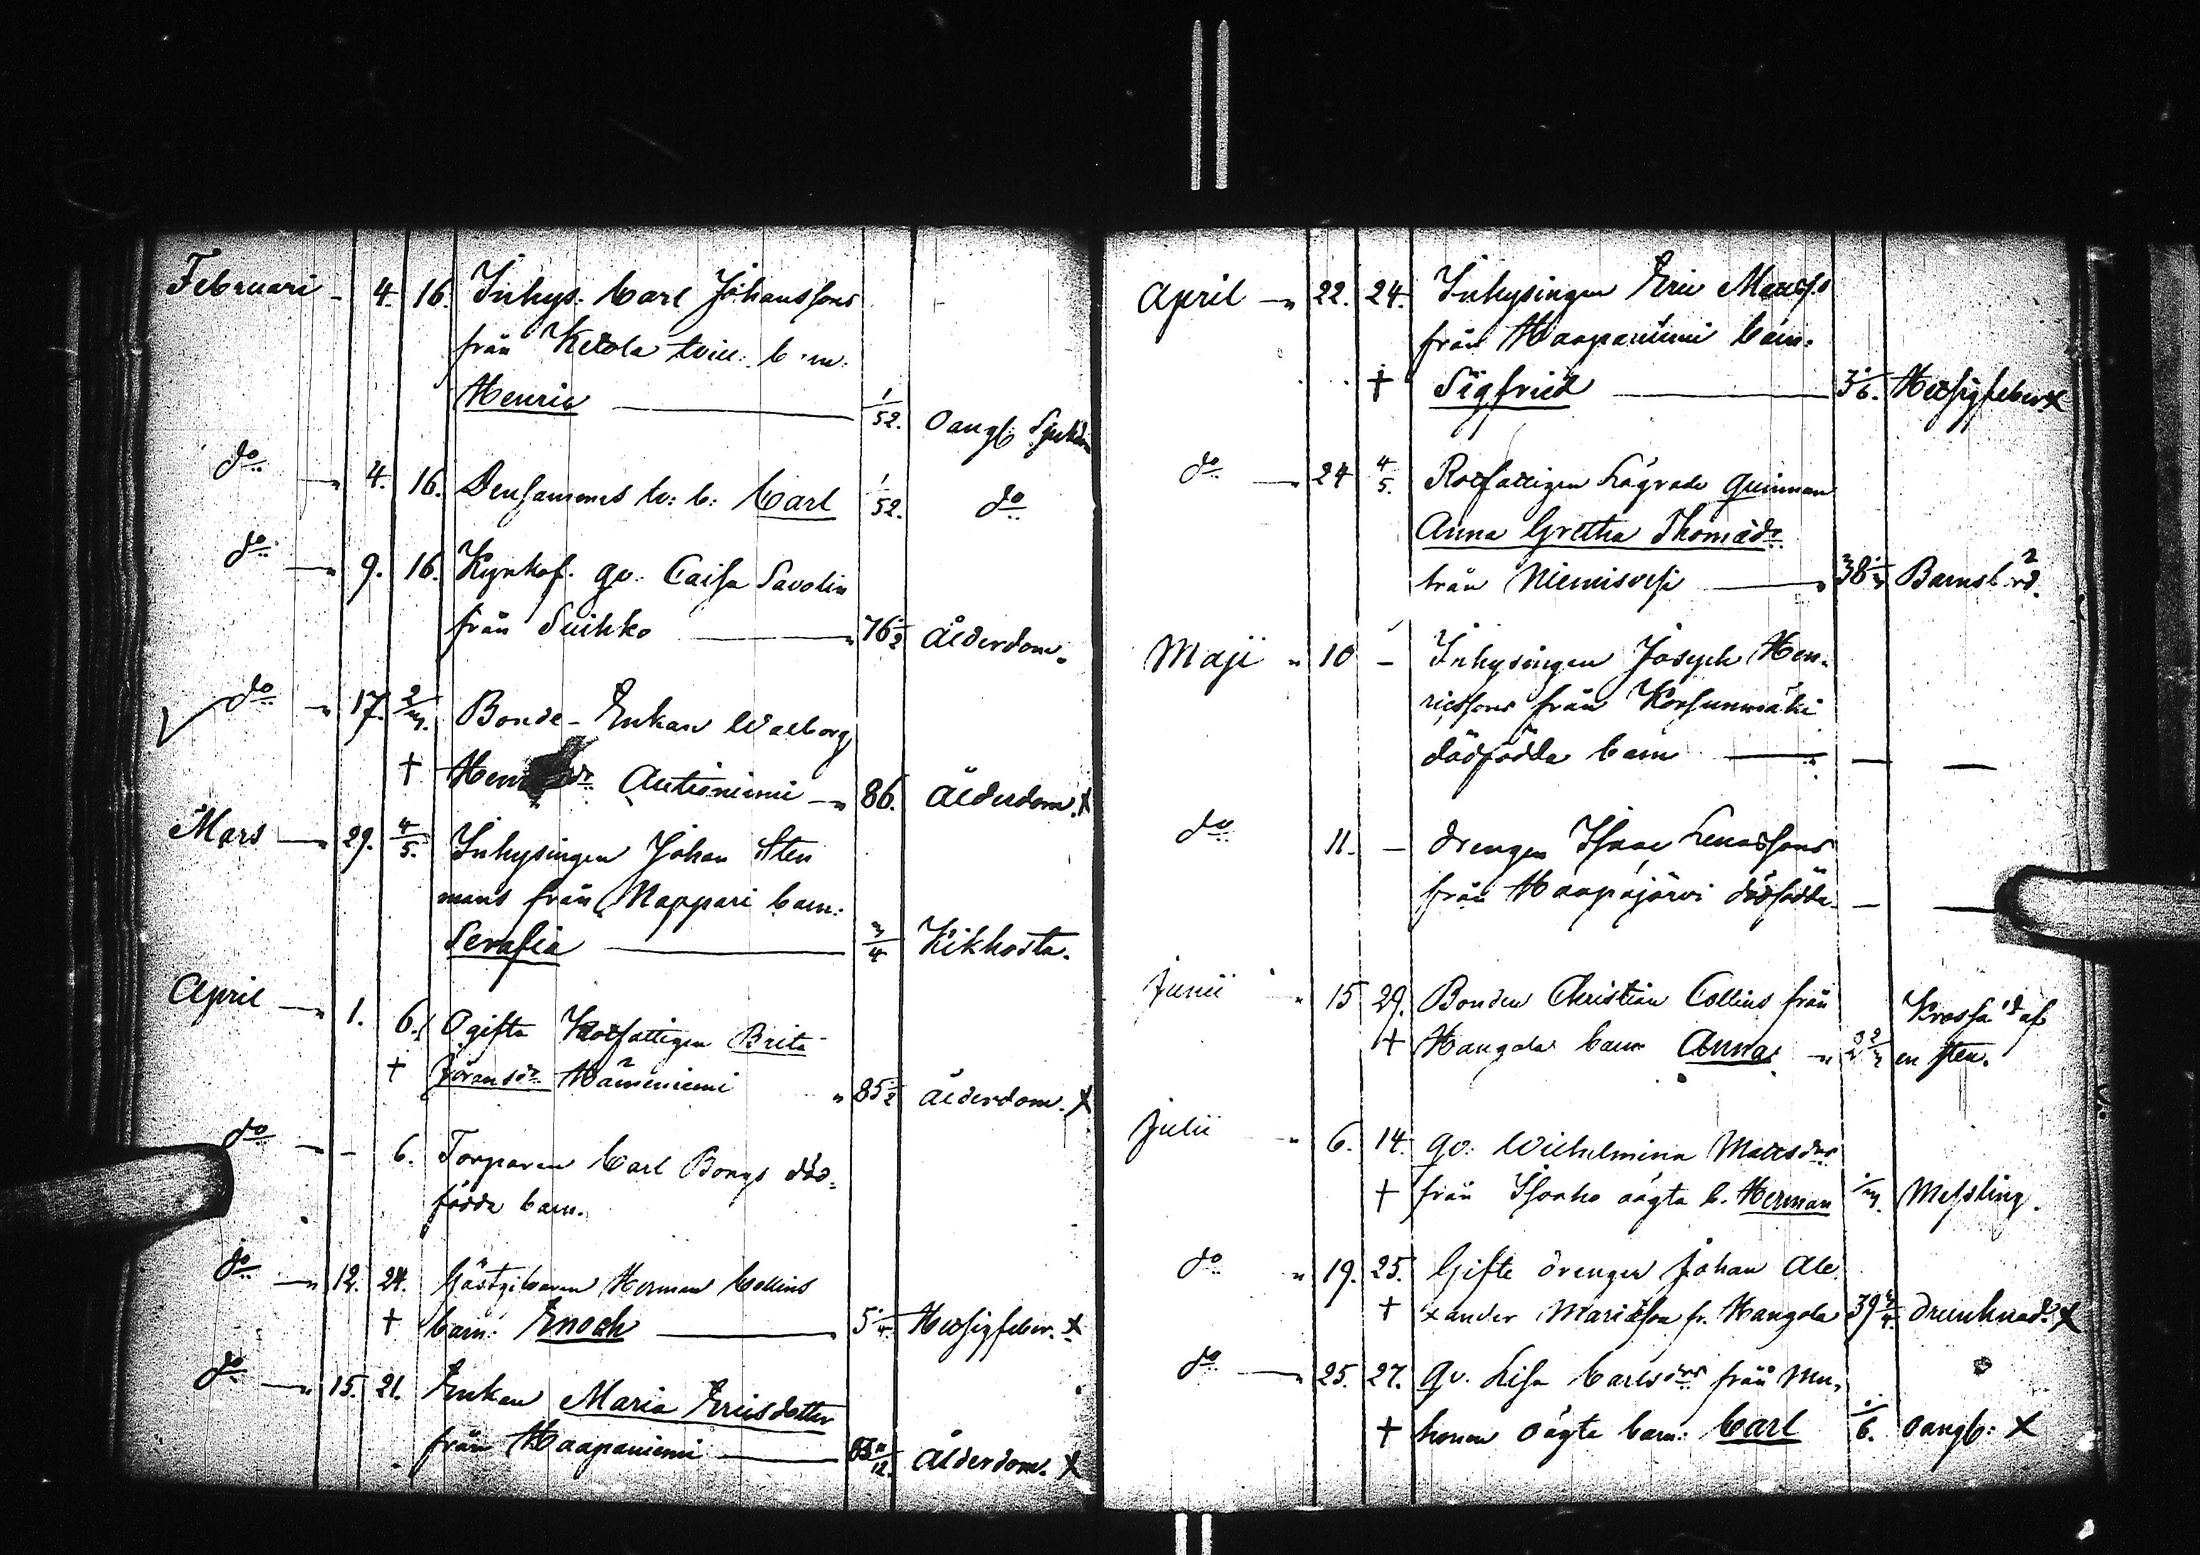 Februari - 4. 16. Inhys. Carl Johanssons
från Ketola tvill. b:n.
Henric 1/52. Oangif. Sjukdom
do 4. 16. Densammes tv: b: Carl 1/52. do
do 9. 16. Kyrkof. qv. Caisa Savolin
från Suihko 76 1/2 Ålderdom.
do 17. 2/3. Bonde-Enkan Walborg
† Henricsdr Autioniemi 86. Ålderdom. x
Mars 29. 4/5. Inhysingen Johan Sten
mans från Nappari barn:
Serafia 3/4 Kikhosta.
April 1. 6. Ogifta Rotfattigen Brita
† Jöransdr Hämeniemi 85 1/2 Ålderdom. x
do - 6. Torparen Carl Bongs död-
födda barn.
do 12. 24. Gästgivaren Herman Collins
† barn: Enoch 5 1/4 Hetsigfeber. x
do 15. 21. Enkan Maria Ericsdotter
från Haapaniemi 12. Ålderdom. x
April 22. 24. Inhysingen Eric Matss:s
från Haapaniemi barn:
† Sigfrid 3 1/6. Hetsigfeber x
do 24 4/5. Rotfattigen Lägrade Quinnan
Anna Gretha Thomædr
från Niemisvesi 38 Barnsbörd.
Maji 10 - Inhysingen Joseph Hen-
ricssons från Korsunmäki
dödfödda barn - -
do 11. - Drengen Isaac Lenassons
från Haapajärvi dödfödda - -
Junii 15 29. Bonden Christian Collins från Krossad af
† Hangola barn Anna 3 2/3 en sten.
Julii 6. 14. qv: Wilhelmina Mattsdrs
† från oägta b. Herman 1/3. Messling.
do 19. 25. Gifte drengen Johan Ale
† xander Mariæson fr. Hangola 39 3/4. Drunknad. x
do 25. 27. Qv. Lisa Carlsdrs från Mu-
† honen oägta barn: Carl 1/6. oangif: x